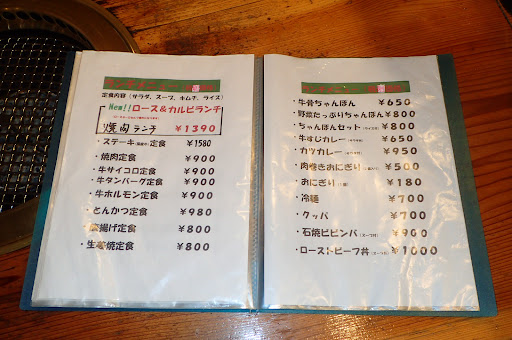 定食内容(サラダ、スープ、キムチ、ライス)
New!!ロース&カルビランチ
焼肉ランチ ¥1390
・ステーキ定食 ¥1580
・焼肉定食 ¥900
・牛サイコロ定食 ¥900
・牛タンバーグ定食 ¥900
・牛ホルモン定食 ¥900
・とんかつ定食 ¥980
・揚げ定食 ¥800
・生姜焼定食 ¥800
・牛骨ちゃんぽん ¥650
・野菜たっぷりちゃんぽん ¥800
・ちゃんぽんセット ¥800
・牛すじカレー ¥650
・カツカレー ¥950
・肉巻きおにぎり ¥500
・おにぎり ¥180
・冷麺 ¥700
・クッパ ¥700
・石焼ビビンバ ¥900
・ローストビーフ丼 ¥1000